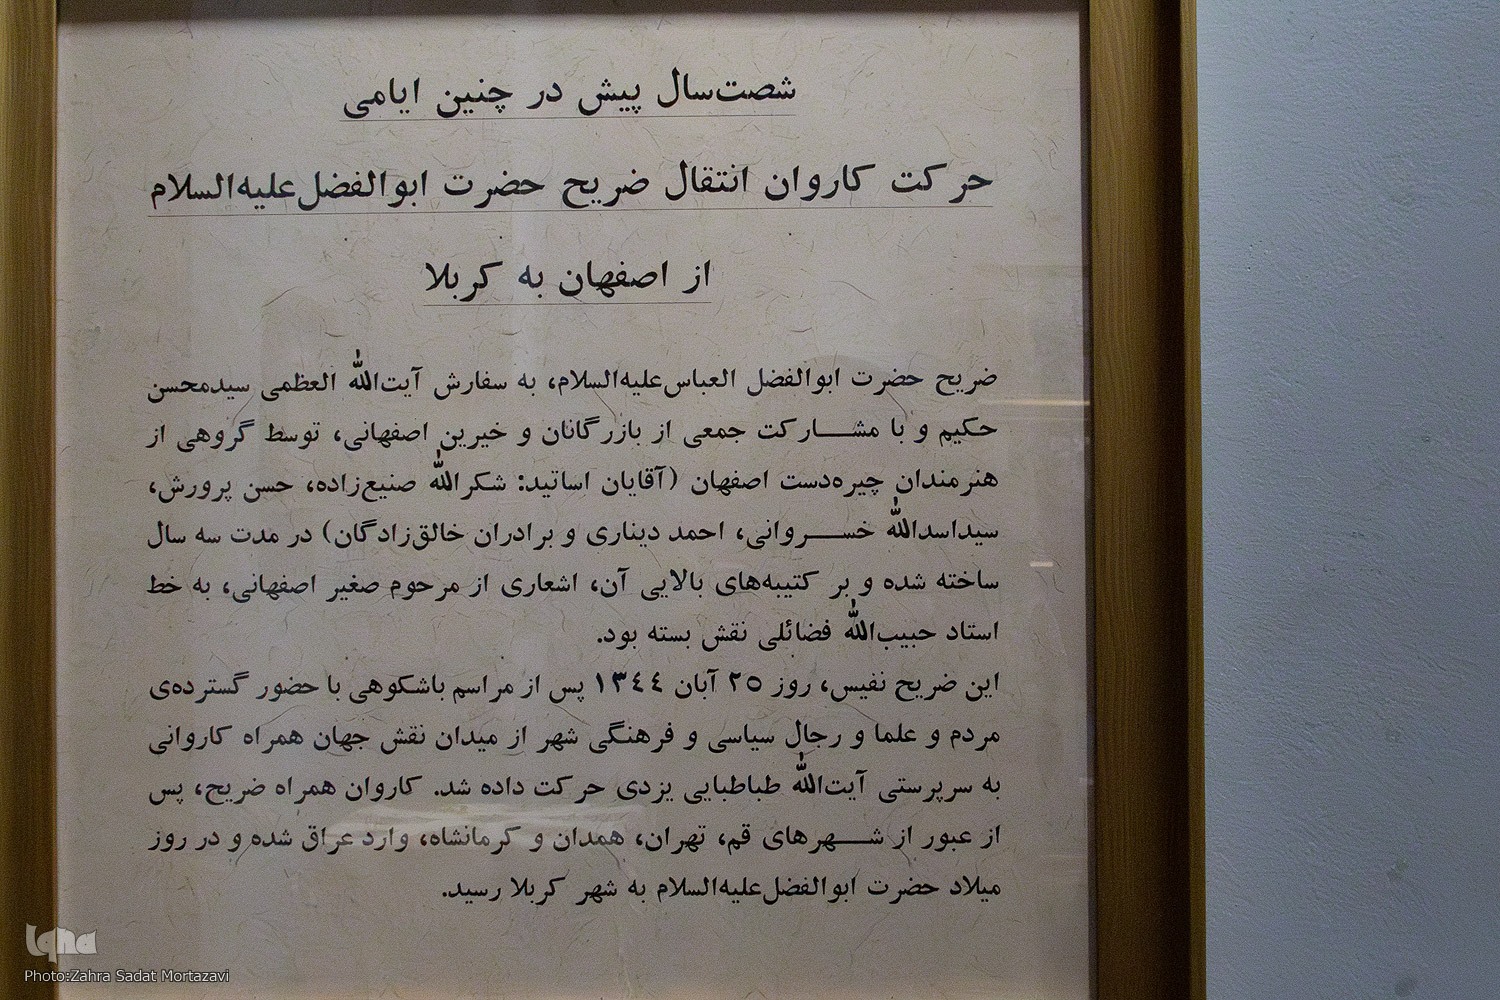 شصت‌سال پیش در چنین ایامی
حرکت کاروان انتقال ضریح حضرت ابوالفضل‌علیه‌السلام
از اصفهان به کربلا
ضریح حضرت ابوالفضل العباس‌علیه‌السلام، به سفارش آیت‌الله العظمی سیدمحسن
حکیم و با مشـــارکت جمعی از بازرگانان و خیرین اصفهانی، توسط گروهی از
هنرمندان چیره‌دست اصفهان (آقایان اساتید: شکرالله صنیع‌زاده، حسن پرورش،
سیداسدالله خســـروانی، احمد دیناری و برادران خالق‌زادگان) در مدت سه سال
ساخته شده و بر کتیبه‌های بالایی آن، اشعاری از مرحوم صغیر اصفهانی، به خط
استاد حبیب‌الله فضائلی نقش بسته بود.
این ضریح نفیس، روز ٢٥ آبان ١٣٤٤ پس از مراسم باشکوهی با حضور گسترده‌ی
مردم و علما و رجال سیاسی و فرهنگی شهر از میدان نقش جهان همراه کاروانی
به سرپرستی آیت‌الله طباطبایی یزدی حرکت داده شد. کاروان همراه ضریح، پس
از عبور از شـــهرهای قم، تهران، همدان و کرمانشاه، وارد عراق شده و در روز
میلاد حضرت ابوالفضل‌علیه‌السلام به شهر کربلا رسید.
Iqna
Photo:Zahra Sadat Mortazavi